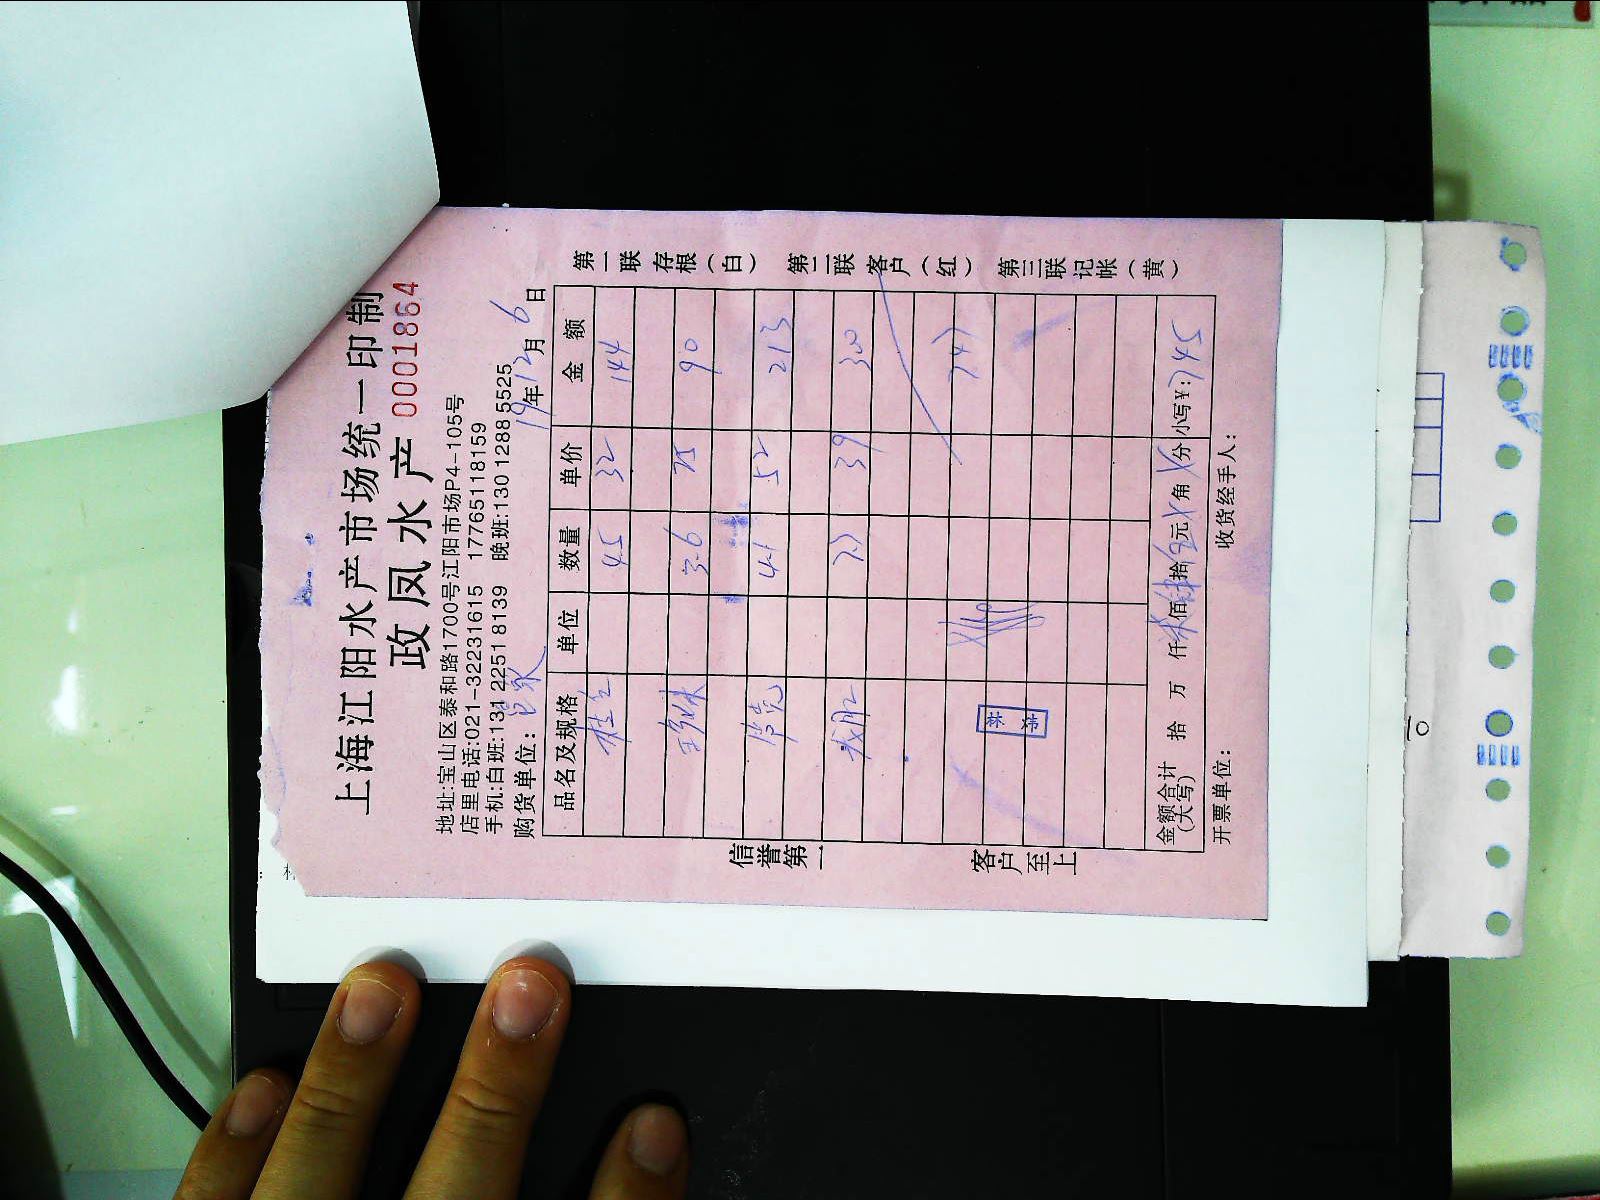 上海江阳水产市场统一印制
政凤水产 0001864
地址:宝山区泰和路1700号江阳市场P4-105号
店里电话:021-32231615 17765118159
手机:白班:131 2251 8139 晚班:130 1288 5525
购货单位: 19年12月6日
品名及规格 单位 数量 单价 金额
桂 4.5 32 144
3.6 25 90
4.1 52 213
7.7 39 300
747
金额合计(大写) 拾 万 仟 佰 拾 元 角 分 小写¥:745
开票单位: 收货经手人:
信誉第一 客户至上
第一联 存根(白) 第二联 客户(红) 第三联 记帐(黄)
10